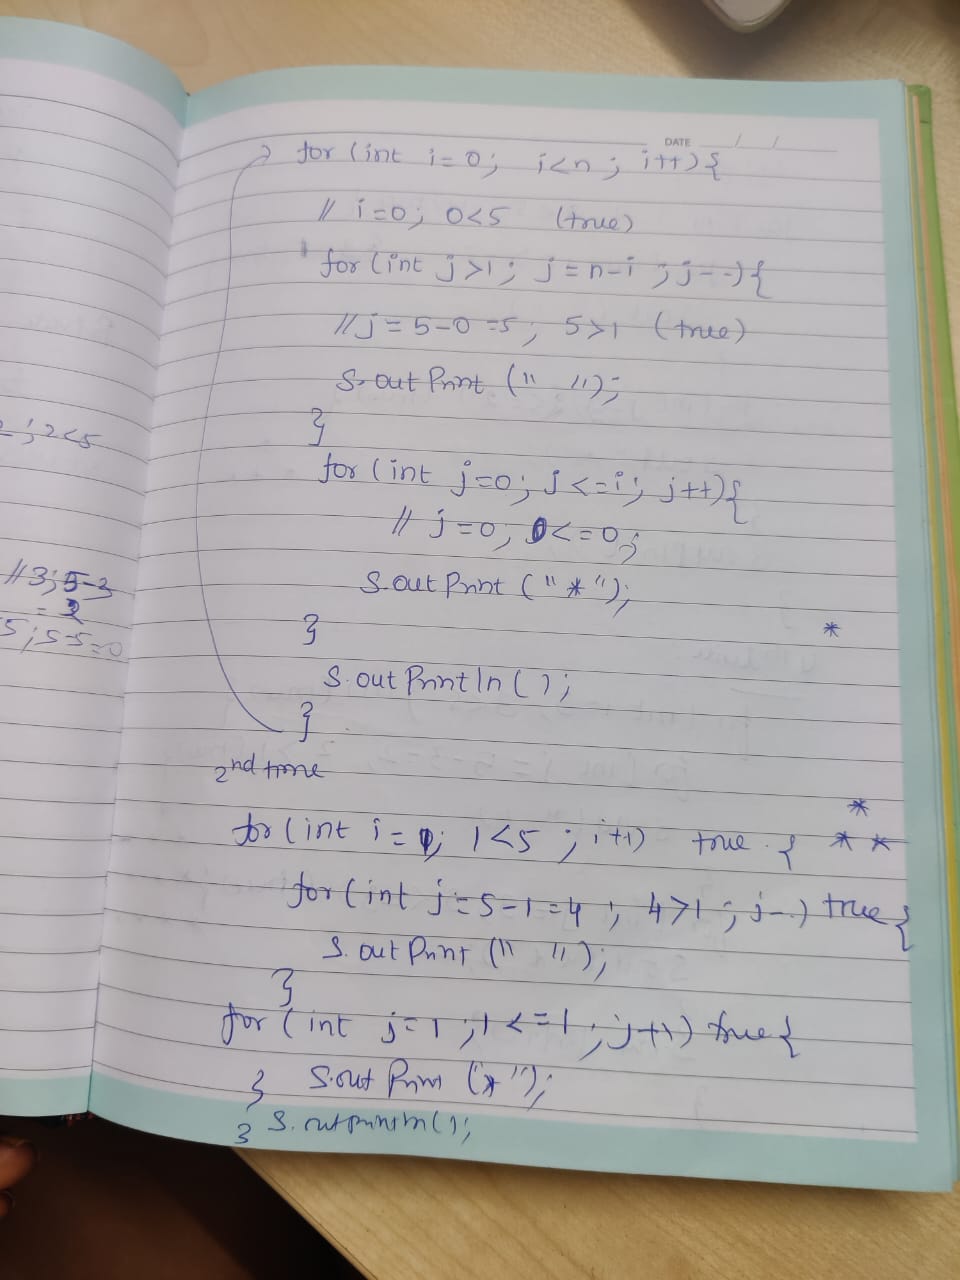 DATE / /
for (int i=0; i<n; i++){
// i=0; 0<5 (true)
for (int j>1; j=n-i; j--){
// j=5-0=5; 5>1 (true)
S.out Print (" ");
}
for (int j=0; j<=i; j++){
// j=0; 0<=0;
S.out Print ("*");
} *
S.out Println ();
}
2nd time
*
for (int i=1; 1<5; i++) true { * *
for (int j=5-1=4; 4>1; j--) true {
S.out Print (" ");
}
for (int j=1; 1<=1; j++) true {
} S.out Print ("*");
} S.out println();
2; 2<5
//3; 5-3
= 2
5; 5-5=0